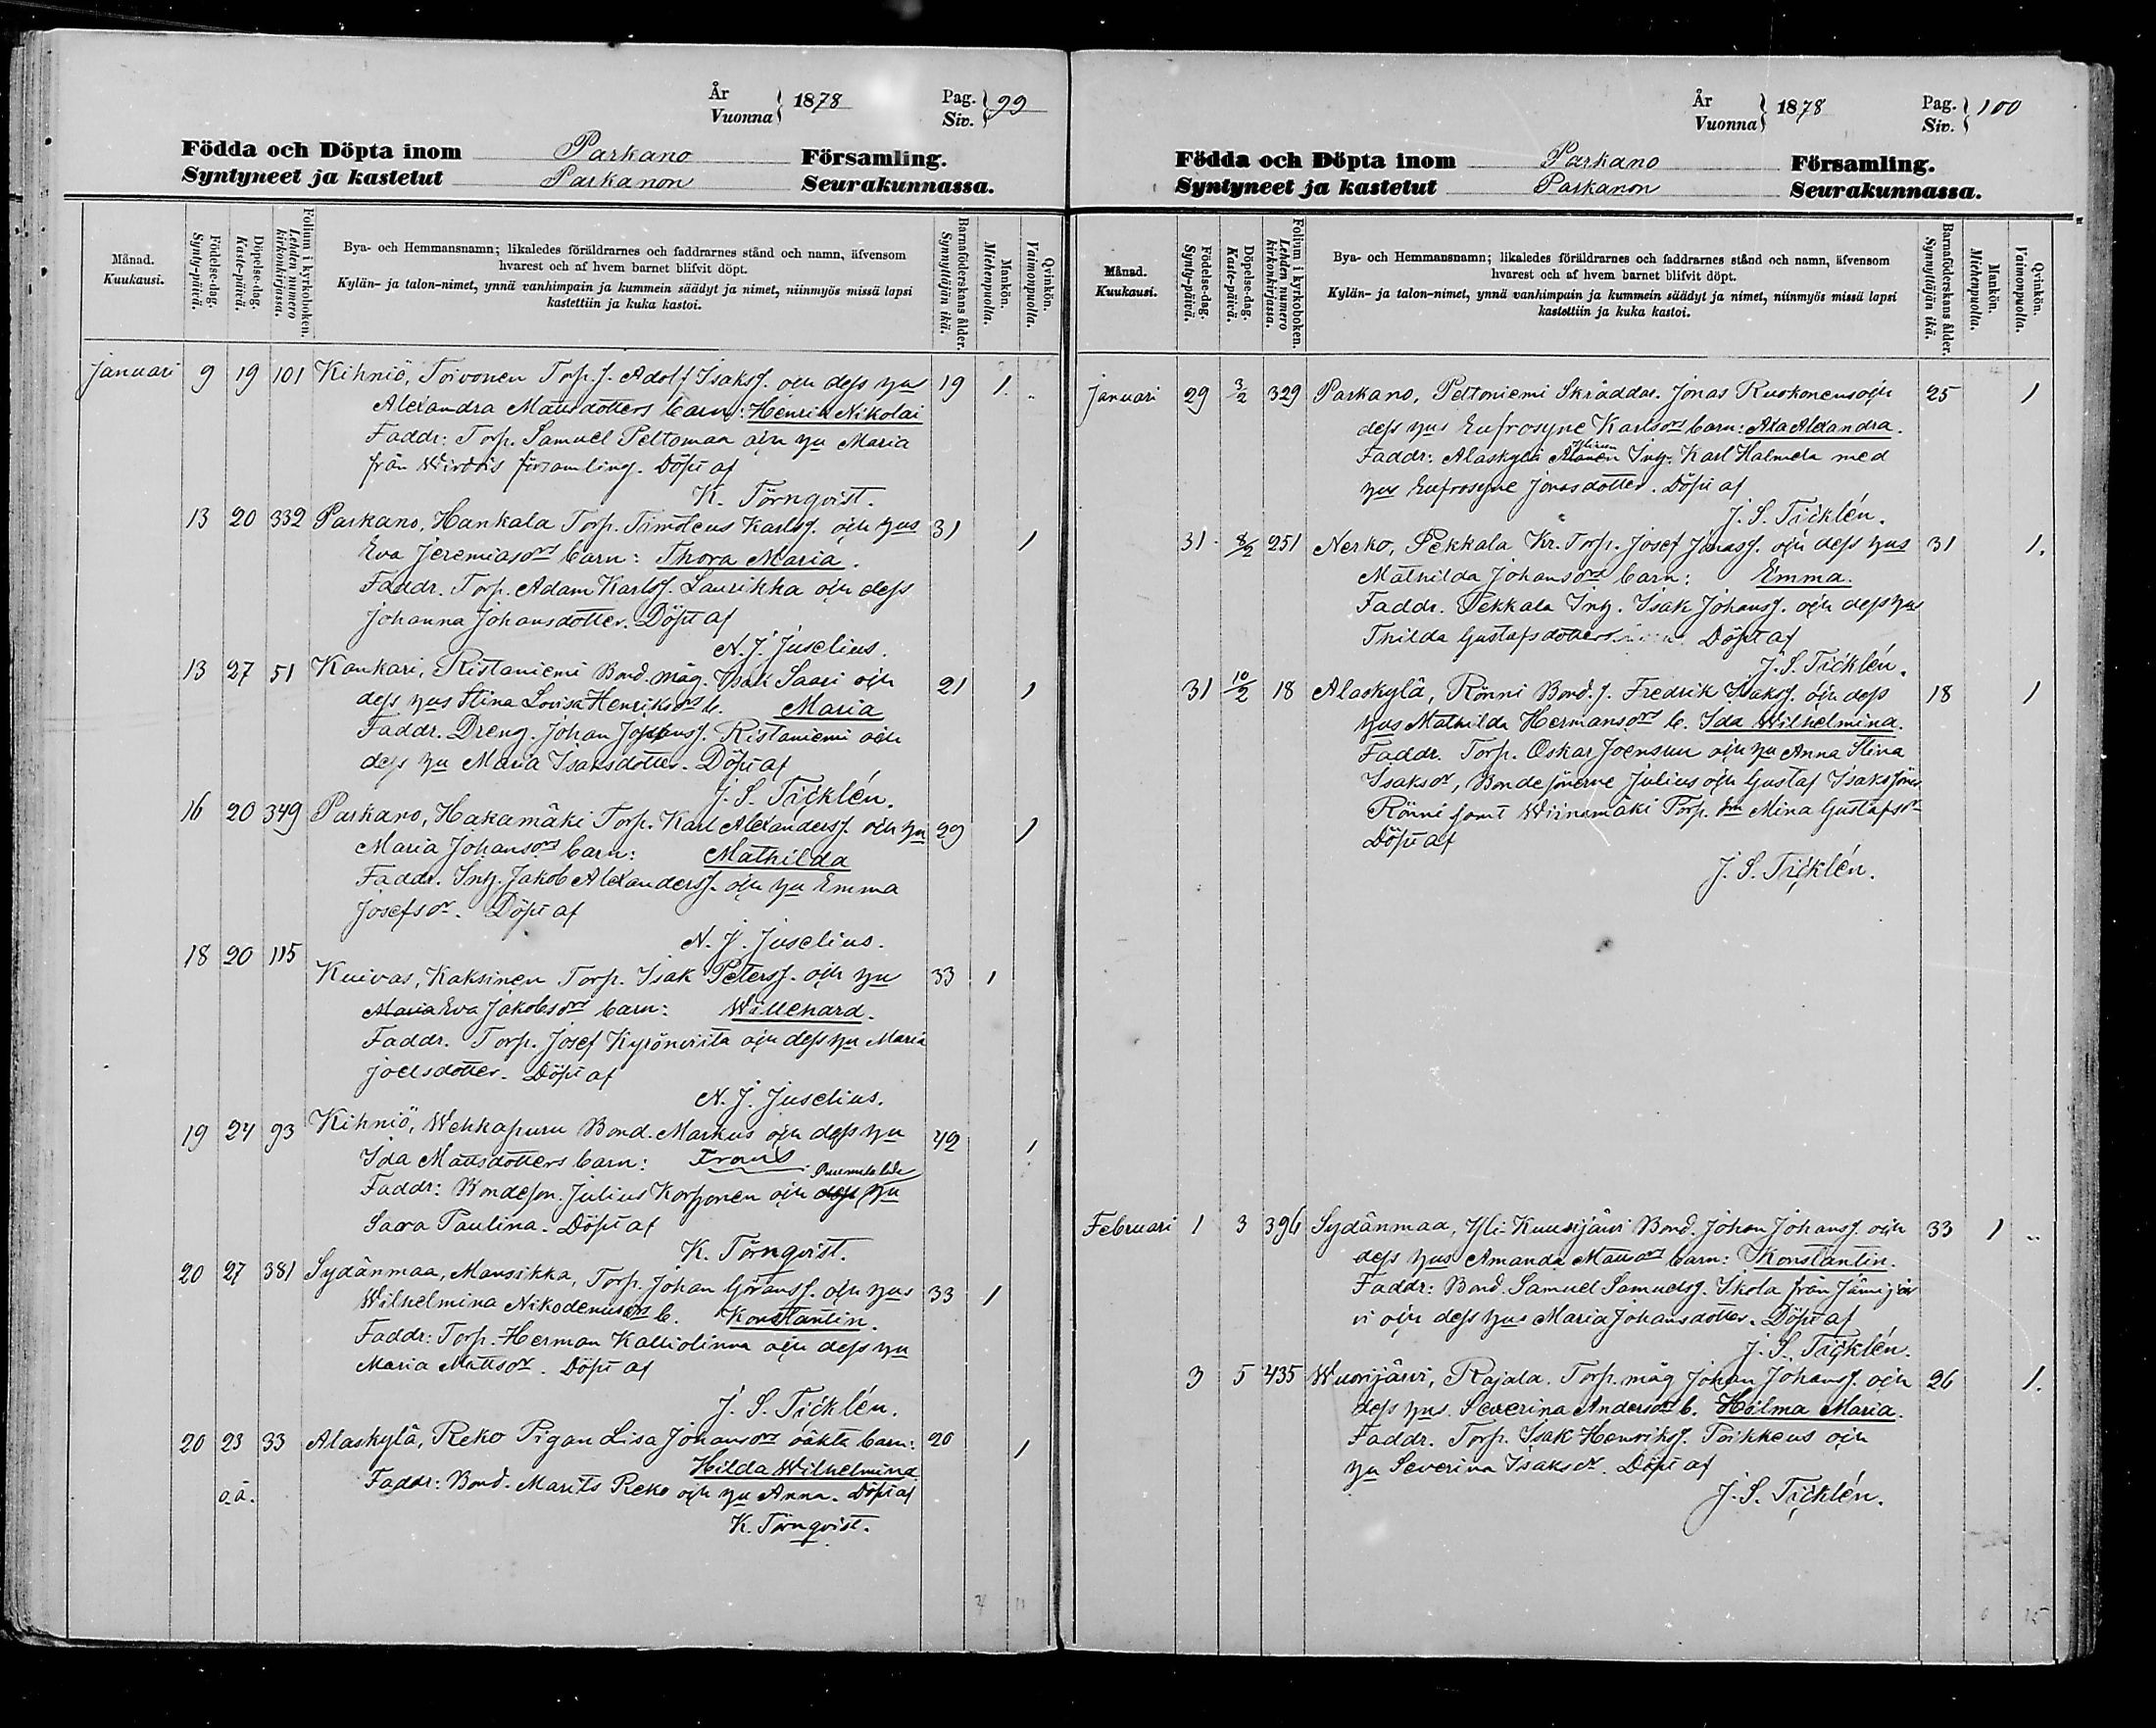 År
Vuonna } 1878
Pag.
Siv. } 99
Födda och Döpta inom Parkano Församling.
Syntyneet ja kastetut Parkanon Seurakunnassa.
Månad.
Kuukausi.
Födelse-dag.
Synty-päivä.
Döpelse-dag.
Kaste-päivä.
Folium i kyrkoboken.
Lehden numero kirkonkirjassa.
Bya- och Hemmansnamn; likaledes föräldrarnes och faddrarnes stånd och namn, äfvensom
hvarest och af hvem barnet blifvit döpt.
Kylän- ja talon-nimet, ynnä vanhimpain ja kummein säädyt ja nimet, niinmyös missä lapsi
kastettiin ja kuka kastoi.
Barnaföderskans ålder.
Synnyttäjän ikä.
Mankön.
Miehenpuolla.
Qvinkön.
Vaimonpuolla.
Januari 9 19 101 Kihniö, Toivonen Torp.s. Adolf Isakss. och dess hus 19 1. ..
Alexandra Mattsdotters barn: Henrik Nikolai
Faddr: Torp. Samuel Peltomaa och hu Maria
från Wirdois församling. Döpt af
K. Törnqvist.
13 20 332 Parkano, Hankala Torp. Timoteus Karlss. och hus 31 1
Eva Jeremiasdrs barn: Thora Maria.
Faddr. Torp. Adam Karlss. Laurikka och dess
Johanna Johansdotter. Döpt af
N. J. Juselius.
13 27 51 Kankari, Ristaniemi Bond. måg. Isak Saari och 21 1
dess hus Stina Lovisa Henriksdrs b. Maria
Faddr. Dreng. Johan Johanss. Ristaniemi och
dess hu Maria Isaksdotter. Döpt af
J. S. Ticklén.
16 20 349 Parkano, Hakamäki Torp. Karl Alexanderss. och hu 29 1
Maria Johansdrs barn: Mathilda
Faddr. Inh. Jakob Alexanderss. och hu Emma
Josefsdr. Döpt af
N. J. Juselius.
18 20 115
Kuivas, Kaksinen Torp. Isak Peterss. och hu 33 1
Maria Eva Jakobsdrs barn: Willehard.
Faddr. Torp. Josef Kyrönviita och dess hu Maria
Joelsdotter. Döpt af
N. J. Juselius.
19 24 93 Kihniö, Wehkapuru Bond. Markus och dess hu 42 1
Ida Mattsdotters barn: Frans
Faddr: Bondeson. Julius Korhonen och dess hu
Sara Paulina. Döpt af
K. Törnqvist.
20 27 381 Sydänmaa, Mansikka, Torp. Johan Göranss. och hus 33 1
Wilhelmina Nikodemusdrs b. Konstantin.
Faddr: Torp. Herman Kalliolinna och dess hu
Maria Mattsdr. Döpt af
J. S. Ticklén.
20 23 33 Alaskylä, Reko Pigan Lisa Johansdrs oäkta barn: 20 1
Hilda Wilhelmina
o.ä. Faddr: Bond. Marits Reko och hu Anna. Döpt af
K. Törnqvist.
4 11
År
Vuonna } 1878
Pag.
Siv. } 100
Födda och Döpta inom Parkano Församling.
Syntyneet ja kastetut Parkanon Seurakunnassa.
Månad.
Kuukausi.
Födelse-dag.
Synty-päivä.
Döpelse-dag.
Kaste-päivä.
Folium i kyrkoboken.
Lehden numero kirkonkirjassa.
Bya- och Hemmansnamn; likaledes föräldrarnes och faddrarnes stånd och namn, äfvensom
hvarest och af hvem barnet blifvit döpt.
Kylän- ja talon-nimet, ynnä vanhimpain ja kummein säädyt ja nimet, niinmyös missä lapsi
kastettiin ja kuka kastoi.
Barnaföderskans ålder.
Synnyttäjän ikä.
Mankön.
Miehenpuolla.
Qvinkön.
Vaimonpuolla.
Januari 29 3/2 329 Parkano, Peltoniemi Skräddar. Jonas Ruskonens och 25 1
dess hus Eufrosyne Karlsdrs barn: Ata Alexandra.
Faddr: Alaskylä Inh. Karl Halmela med
hus Eufrosyne Jonasdotter. Döpt af
J. S. Ticklén.
31 8/2 251 Nerko, Pekkala Kr. Torp. Josef Jonass. och dess hus 31 1.
Mathilda Johansdrs barn: Emma.
Faddr. Pekkala Inh. Isak Johanss. och dess hus
Thilda Gustafsdotters Döpt af
J. S. Ticklén.
31 10/2 18 Alaskylä, Rönni Bond. s. Fredrik Isakss. och dess 18 1
hus Mathilda Hermansdrs b. Ida Wilhelmina.
Faddr. Torp. Oskar Joensuu och hu Anna Stina
Isaksdr, Bondesönerne Julius och Gustaf Isakssöner
Rönni samt Wiinamäki Torp. Mina Gustafsdr
Döpt af
J. S. Ticklén.
Februari 1 3 396 Sydänmaa, Yli-Kuusijärvi Bond. Johan Johanss. och 33 1 ..
dess hus Amanda Mattsdrs barn: Konstantin.
Faddr: Bond. Samuel Samuelss. Skola från Jämijär
vi och dess hus Maria Johansdotter. Döpt af
J. S. Ticklén.
3 5 435 Wuorijärvi, Rajala. Torp. måg Johan Johanss. och 26 1.
dess hus. Severina Andersdrs b. Hilma Maria.
Faddr. Torp. Isak Henrikss. Poikkeus och
hu Severina Isaksdr. Döpt af
J. S. Ticklén.
6 15